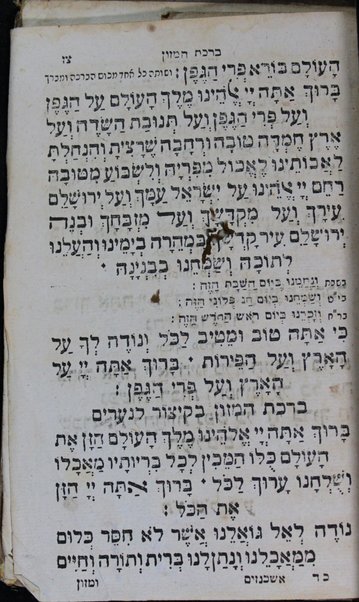 ברכת המזון
צז
הָעוֹלָם בּוֹרֵא פְּרִי הַגֶּפֶן: ושותה כל אחד מכוס הברכה ומברך
בָּרוּךְ אַתָּה יְיָ אֱלֹהֵינוּ מֶלֶךְ הָעוֹלָם עַל הַגֶּפֶן
וְעַל פְּרִי הַגֶּפֶן וְעַל תְּנוּבַת הַשָּׂדֶה וְעַל
אֶרֶץ חֶמְדָּה טוֹבָה וּרְחָבָה שֶׁרָצִיתָ וְהִנְחַלְתָּ
לַאֲבוֹתֵינוּ לֶאֱכוֹל מִפִּרְיָהּ וְלִשְׂבּוֹעַ מִטּוּבָהּ
רַחֵם יְיָ אֱלֹהֵינוּ עַל יִשְׂרָאֵל עַמֶּךָ וְעַל יְרוּשָׁלַיִם
עִירֶךָ וְעַל מִקְדָּשֶׁךָ וְעַל מִזְבָּחֶךָ וּבְנֵה
יְרוּשָׁלַיִם עִיר בִּמְהֵרָה בְיָמֵינוּ וְהַעֲלֵנוּ
לְתוֹכָהּ וְשַׂמְּחֵנוּ בְּבִנְיָנָהּ ·
בשבת וְנַחֲמֵנוּ בְּיוֹם הַשַּׁבָּת הַזֶּה:
בי״ט וְשַׂמְּחֵנוּ בְּיוֹם חַג פְּלוֹנִי הַזֶּה:
בר״ח וְזָכְרֵנוּ בְּיוֹם רֹאשׁ הַחֹדֶשׁ הַזֶּה:
כִּי אַתָּה טוֹב וּמֵטִיב לַכֹּל וְנוֹדֶה לְךָ עַל
הָאָרֶץ וְעַל הַפֵּירוֹת · בָּרוּךְ אַתָּה יְיָ עַל
הָאָרֶץ וְעַל פְּרִי הַגֶּפֶן:
ברכת המזון בקיצור לנערים
בָּרוּךְ אַתָּה יְיָ אֱלֹהֵינוּ מֶלֶךְ הָעוֹלָם הַזָּן אֶת
הָעוֹלָם כֻּלּוֹ הַמֵּכִין לְכָל בְּרִיּוֹתָיו מַאֲכָלוֹ
וְשֻׁלְחָנוֹ עָרוּךְ לַכֹּל · בָּרוּךְ אַתָּה יְיָ הַזָּן
אֶת הַכֹּל:
נוֹדֶה לְאֵל גּוֹאֲלֵנוּ אֲשֶׁר לֹא חִסַּר כְּלוּם
מִמַּאֲכָלֵנוּ וְנָתַן לָנוּ בְּרִית וְתוֹרָה וְחַיִּים
כד אשכנזים ומזון